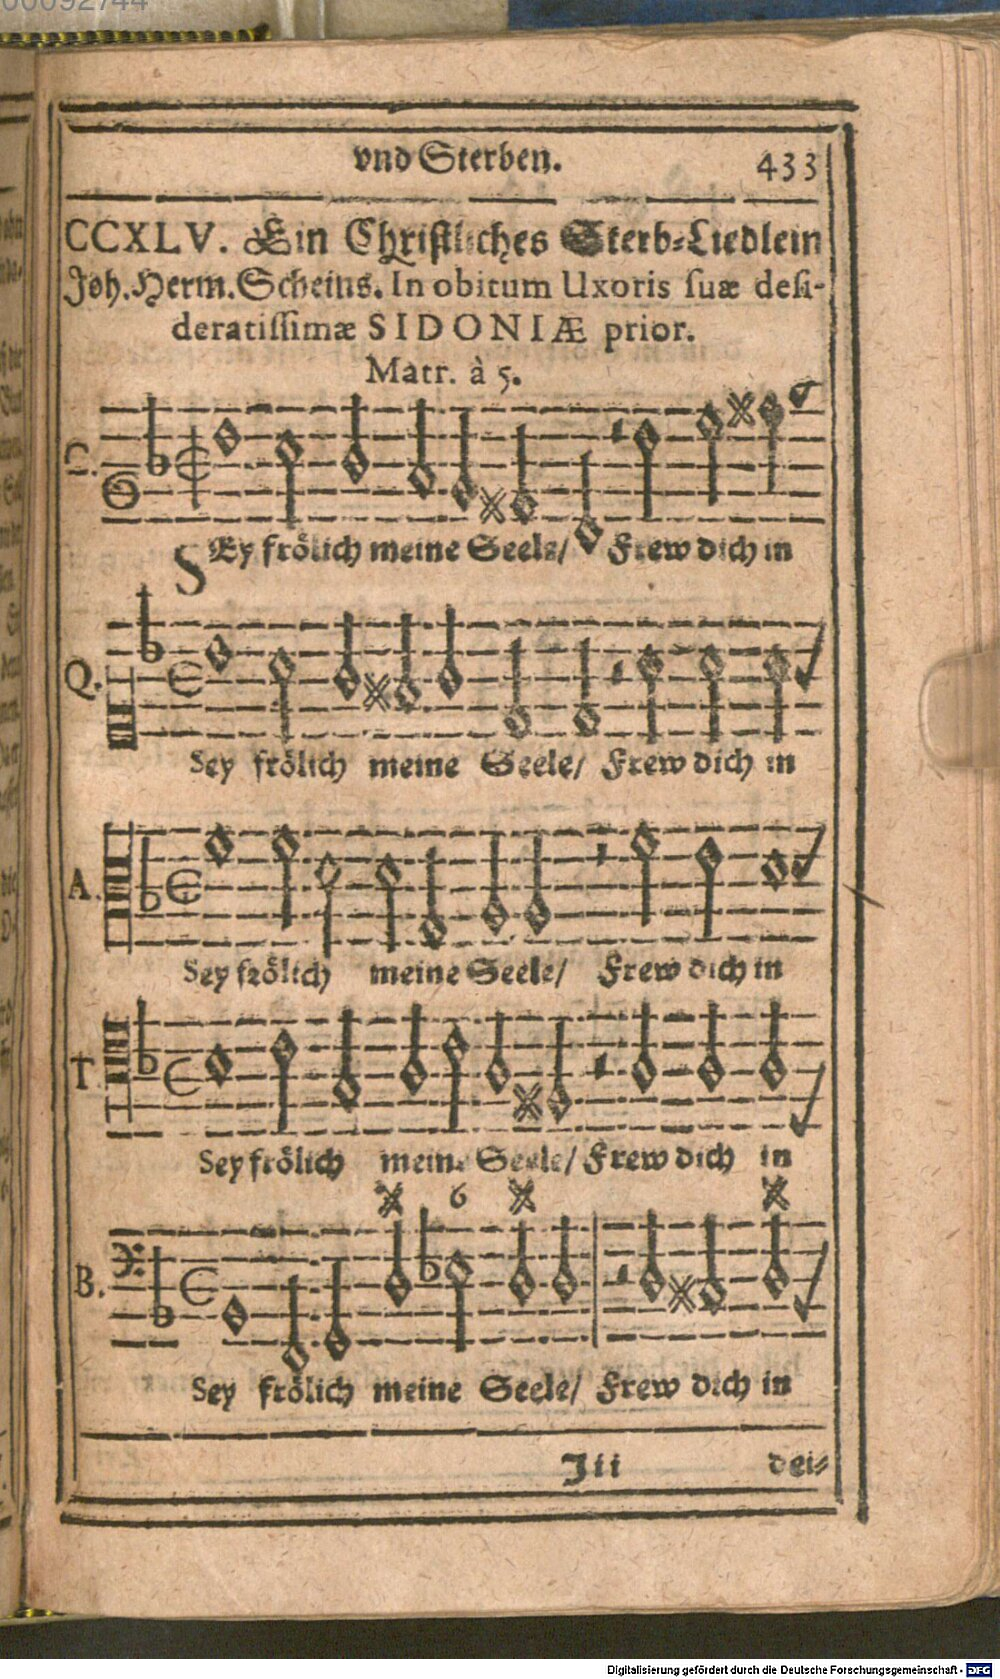 00092744
vnd Sterben. 433
CCXLV. Ein Christliches Sterb-Liedlein
Joh. Herm. Scheins. In obitum Uxoris suæ desi-
deratissimæ SIDONIÆ prior.
Matr. à 5.
C.
SEy frölich meine Seele/ Frew dich in
Q.
Sey frölich meine Seele/ Frew dich in
A.
Sey frölich meine Seele/ Frew dich in
T.
Sey frölich meine Seele/ Frew dich in
6
B.
Sey frölich meine Seele/ Frew dich in
Jii dei-
Digitalisierung gefördert durch die Deutsche Forschungsgemeinschaft - DFG